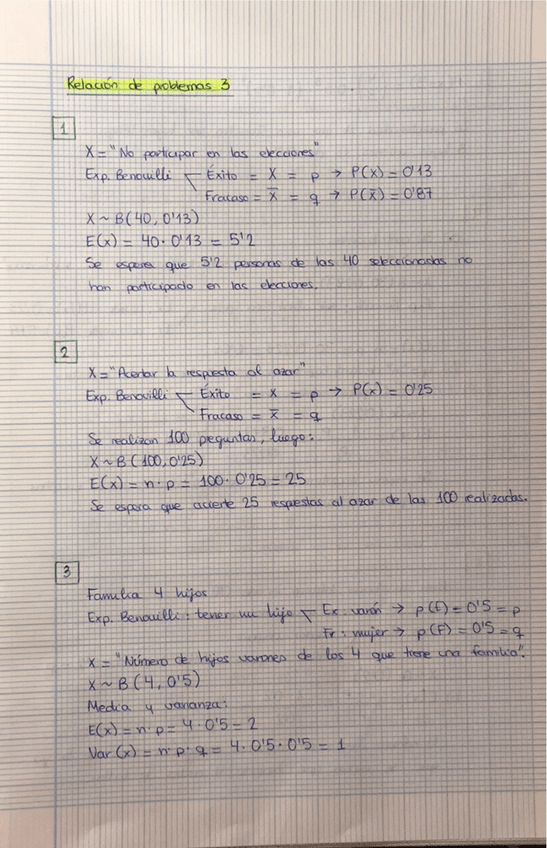 Relación de problemas 3
1
X = "No participar en las elecciones"
Exp. Benouilli Éxito = X = p → P(X) = 0'13
Fracaso = X̅ = q → P(X̅) = 0'87
X ~ B(40, 0'13)
E(x) = 40 · 0'13 = 5'2
Se espera que 5'2 personas de las 40 seleccionadas no
han participado en las elecciones.
2
X = "Acertar la respuesta al azar"
Exp. Benouilli Éxito = X = p → P(x) = 0'25
Fracaso = X̅ = q
Se realizan 100 preguntas, luego:
X ~ B(100, 0'25)
E(x) = n · p = 100 · 0'25 = 25
Se espera que acierte 25 respuestas al azar de las 100 realizadas.
3
Familia 4 hijos
Exp. Benouilli: tener un hijo Ex: varón → p(E) = 0'5 = p
Fr: mujer → p(F) = 0'5 = q
X = "Número de hijos varones de los 4 que tiene una familia".
X ~ B(4, 0'5)
Media y varianza:
E(x) = n · p = 4 · 0'5 = 2
Var(x) = n · p · q = 4 · 0'5 · 0'5 = 1